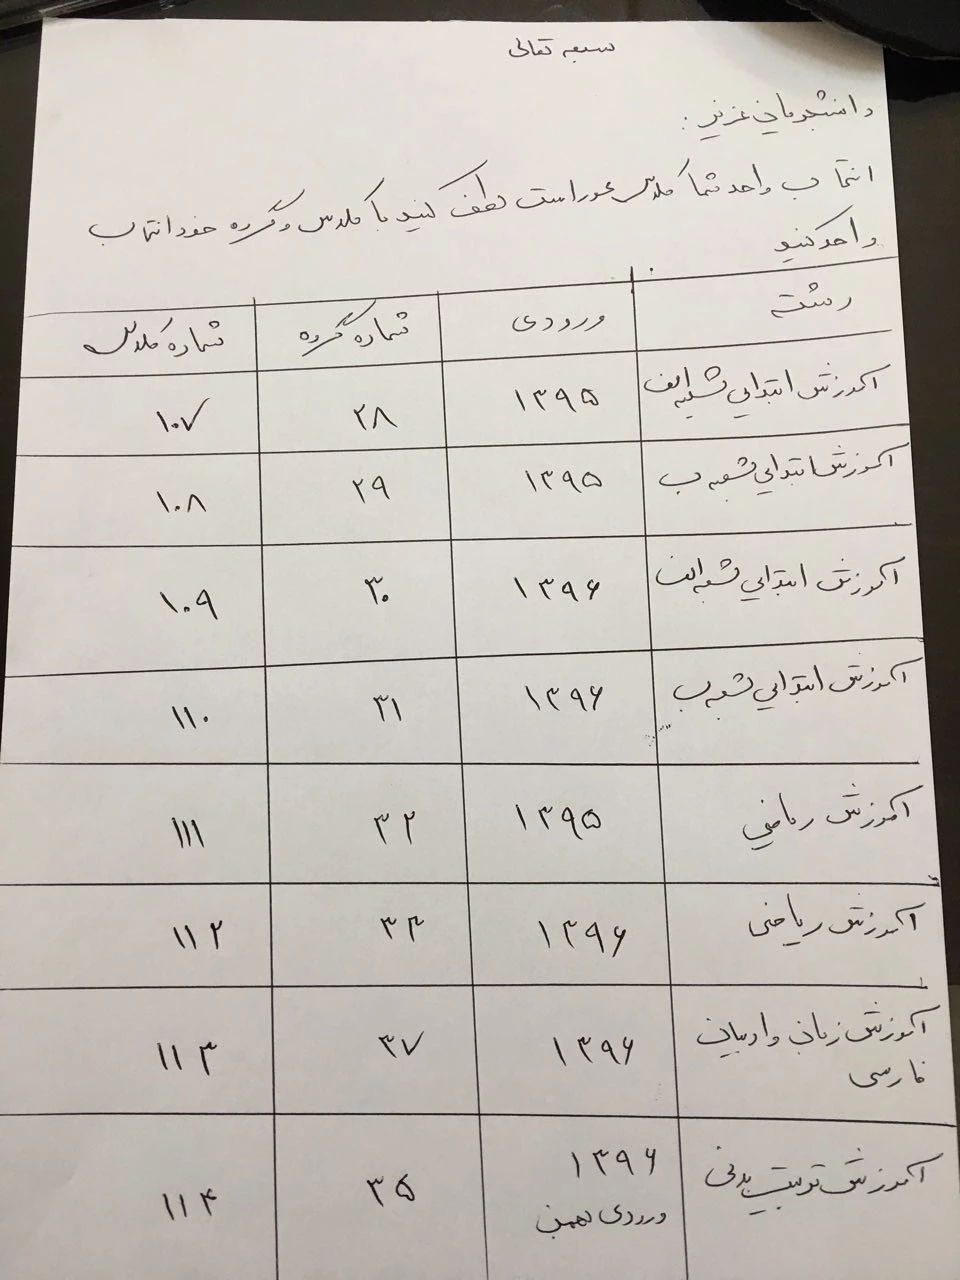 بسمه تعالی
دانشجویان عزیز :
انتخاب واحد شما کلاس محور است لطف کنید با کلاس و گروه خود انتخاب
واحد کنید
رشته ورودی شماره گروه شماره کلاس
آموزش ابتدایی شعبه الف ۱۳۹۵ ۲۸ ۱۰۷
آموزش ابتدایی شعبه ب ۱۳۹۵ ۲۹ ۱۰۸
آموزش ابتدایی شعبه الف ۱۳۹۶ ۳۰ ۱۰۹
آموزش ابتدایی شعبه ب ۱۳۹۶ ۳۱ ۱۱۰
آموزش ریاضی ۱۳۹۵ ۳۲ ۱۱۱
آموزش ریاضی ۱۳۹۶ ۳۳ ۱۱۲
آموزش زبان و ادبیات ۱۳۹۶ ۳۷ ۱۱۳
فارسی
آموزش تربیت بدنی ۱۳۹۶ ۳۵ ۱۱۴
ورودی بهمن